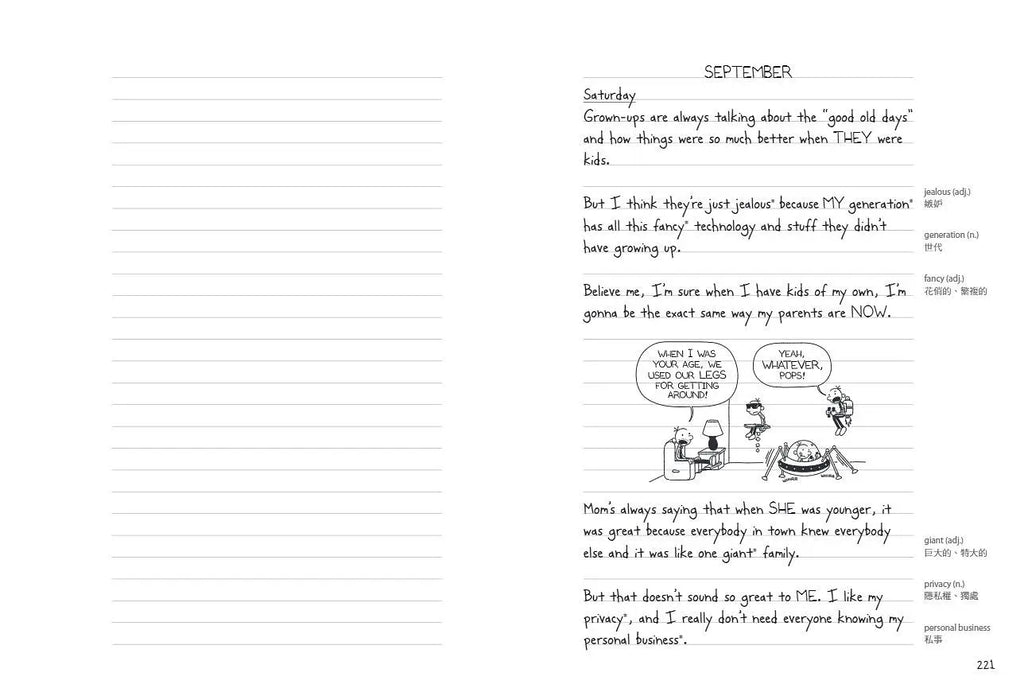 SEPTEMBER
Saturday
Grown-ups are always talking about the "good old days"
and how things were so much better when THEY were
kids.
But I think they're just jealous* because MY generation*
has all this fancy* technology and stuff they didn't
have growing up.
Believe me, I'm sure when I have kids of my own, I'm
gonna be the exact same way my parents are NOW.
WHEN I WAS
YOUR AGE, WE
USED OUR LEGS
FOR GETTING
AROUND!
YEAH,
WHATEVER,
POPS!
Mom's always saying that when SHE was younger, it
was great because everybody in town knew everybody
else and it was like one giant* family.
But that doesn't sound so great to ME. I like my
privacy*, and I really don't need everyone knowing my
personal business*.
jealous (adj.)
嫉妒
generation (n.)
世代
fancy (adj.)
花俏的、繁複的
giant (adj.)
巨大的、特大的
privacy (n.)
隱私權、獨處
personal business
私事
221